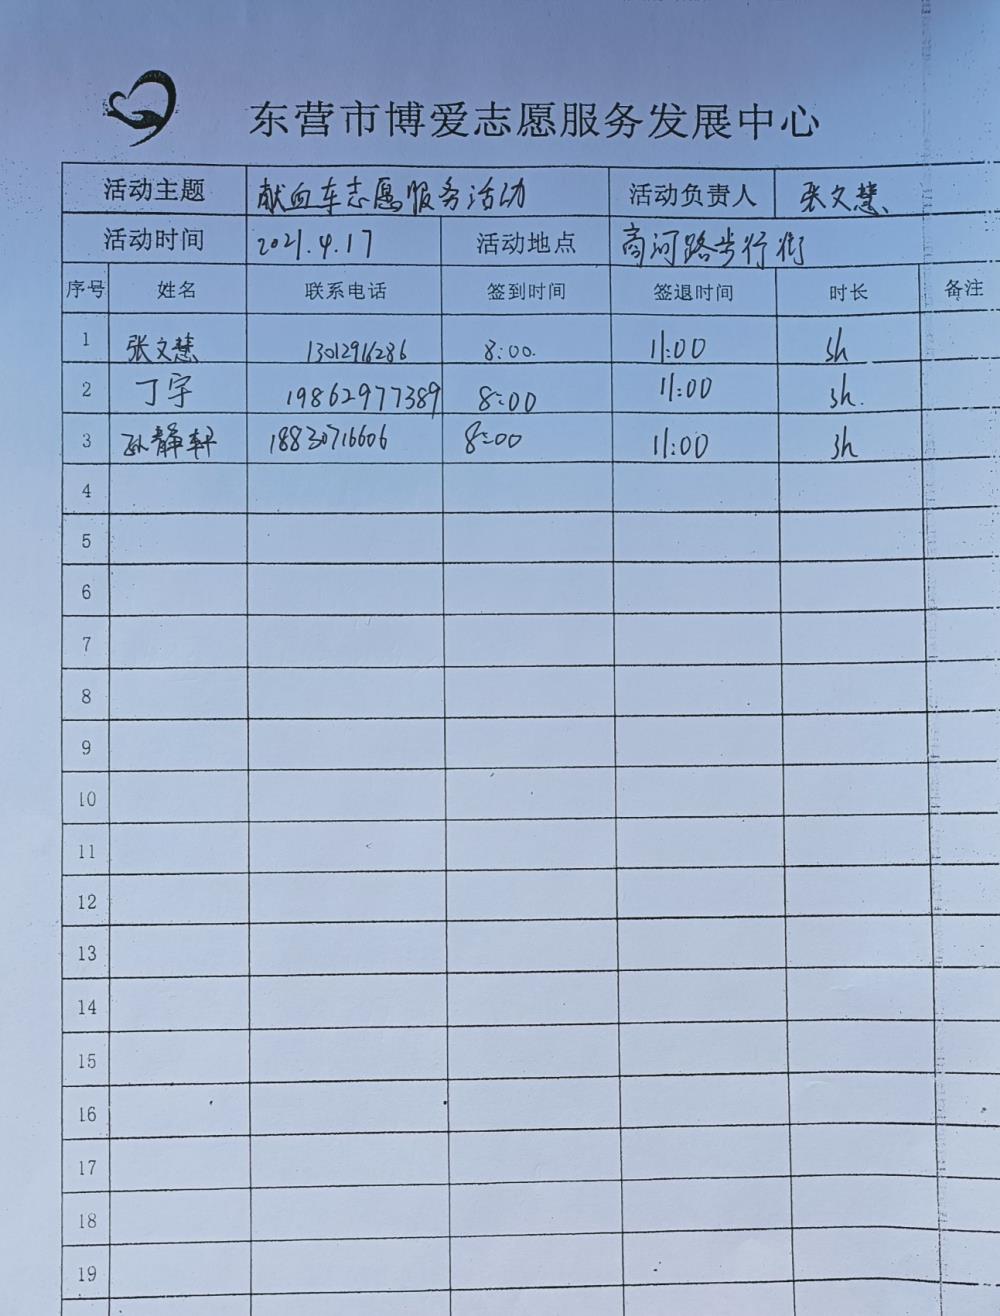 东营市博爱志愿服务发展中心
活动主题 献血车志愿服务活动 活动负责人 张文慧
活动时间 2021.4.17 活动地点 商河路步行街
序号 姓名 联系电话 签到时间 签退时间 时长 备注
1 张文慧 1301296286 8:00. 11:00 3h
2 丁宇 19862977389 8:00 11:00 3h.
3 孙静轩 18830716606 8:00 11:00 3h
4
5
6
7
8
9
10
11
12
13
14
15
16
17
18
19